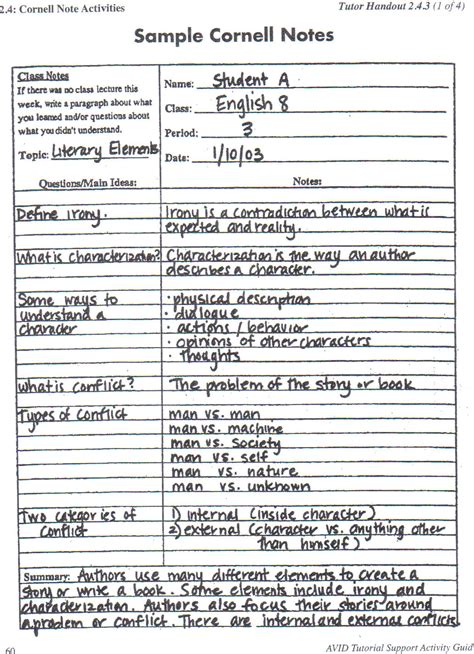 2.4: Cornell Note Activities Tutor Handout 2.4.3 (1 of 4)
Sample Cornell Notes
Class Notes
If there was no class lecture this
week, write a paragraph about what
you learned and/or questions about
what you didn't understand.
Topic: Literary Elements
Name: Student A
Class: English 8
Period: 3
Date: 1/10/03
Questions/Main Ideas: Notes:
Define irony. Irony is a contradiction between what is
expected and reality.
What is characterization? Characterization is the way an author
describes a character.
Some ways to · physical description
understand a · dialogue
character · actions / behavior
· opinions of other characters
· thoughts
What is conflict? The problem of the story or book
Types of conflict man vs. man
man vs. machine
man vs. society
man vs. self
man vs. nature
man vs. unknown
Two categories of 1) internal (inside character)
conflict 2) external (character vs. anything other
than himself)
Summary: Authors use many different elements to create a
story or write a book. Some elements include irony and
characterization. Authors also focus their stories around
a problem or conflict. There are internal and external conflicts
60 AVID Tutorial Support Activity Guide